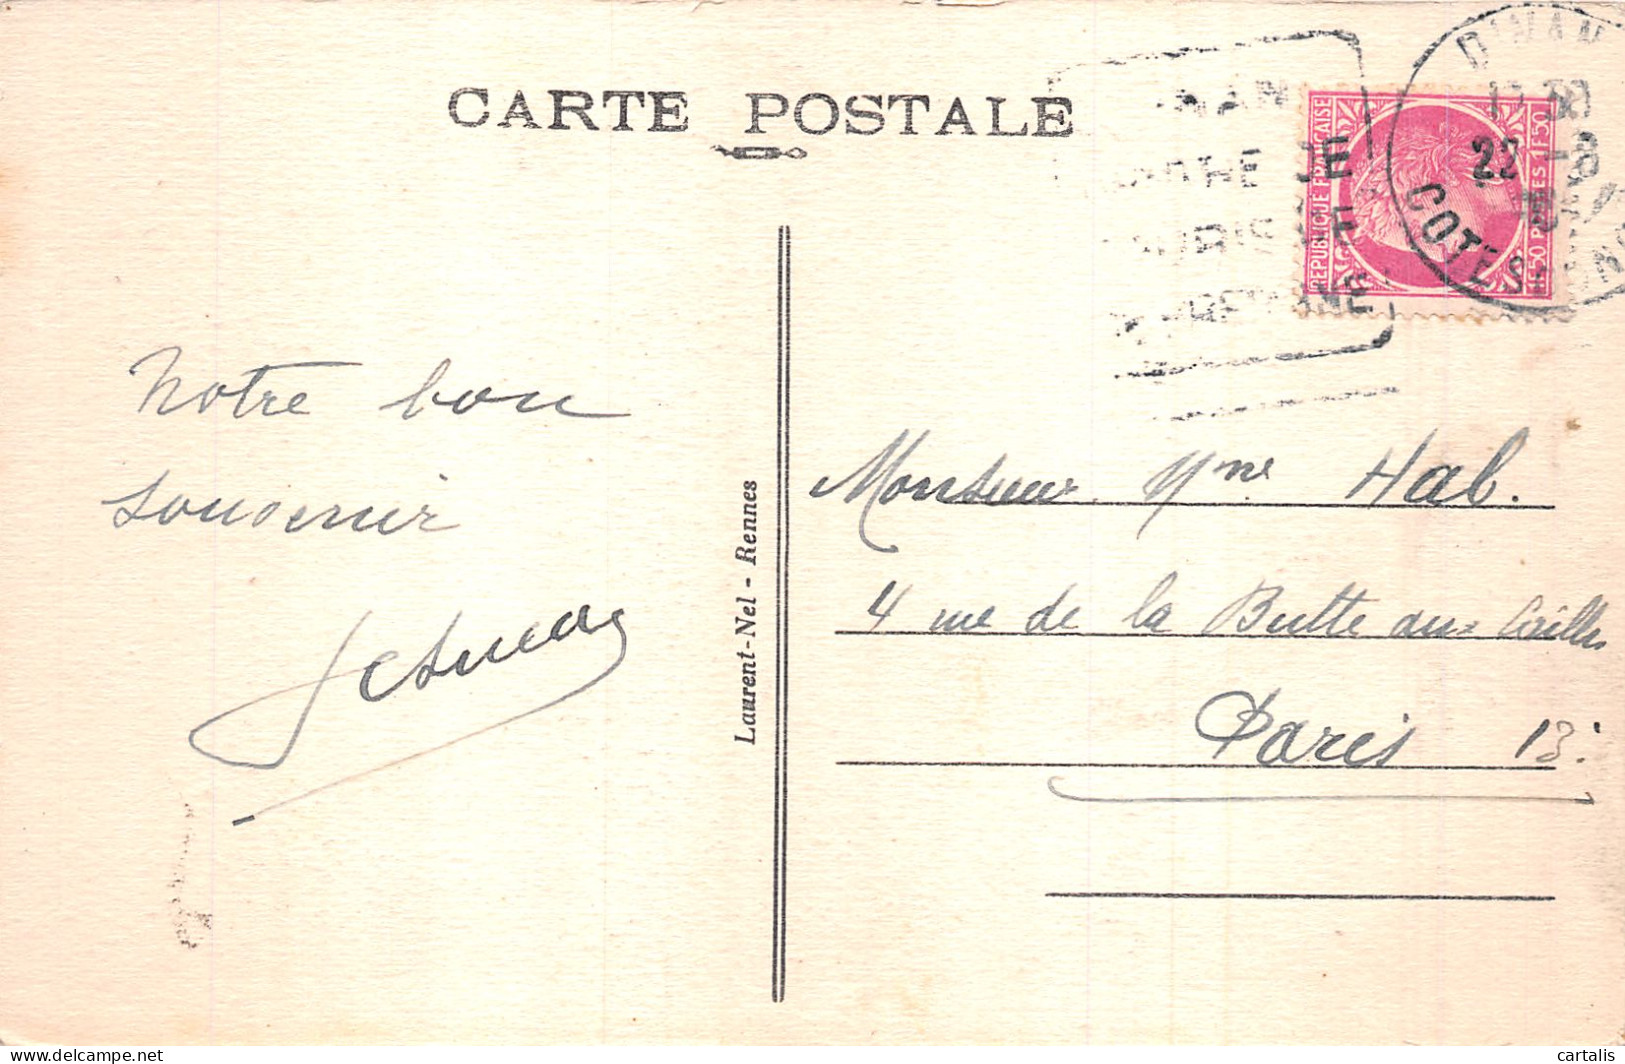 CARTE POSTALE
DINAN
22 -8
COTES
RÉPUBLIQUE FRANÇAISE
POSTES 1F50
Notre bon
souvenir
Laurent-Nel - Rennes
Monsieur Mme Hab.
4 rue de la Butte aux Cailles
Paris 13.
delcampe.net
cartalis